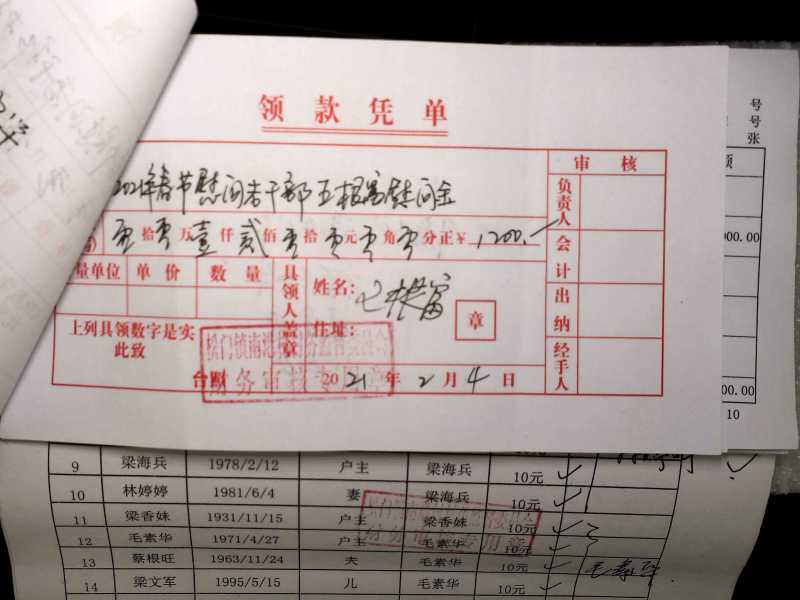 领款凭单
审核
2021年春节慰问老干部王根富慰问金
负责人
零拾零万壹仟贰佰零拾零元零角零分正¥1200.—
会计
量单位 单价 数量
具领人盖章
姓名: 王根富
章
出纳
上列具领数字是实
此致
住址:
经手人
台照
2021年2月4日
财务审核专用章
号
号
张
000.00
00.00
10
9 梁海兵 1978/2/12 户主 梁海兵 10元
10 林婷婷 1981/6/4 妻 梁海兵 10元
11 梁香妹 1931/11/15 户主 梁香妹 10元
12 毛素华 1971/4/27 户主 毛素华 10元
13 蔡根旺 1963/11/24 夫 毛素华 10元 毛素华
14 梁文军 1995/5/15 儿 毛素华 10元